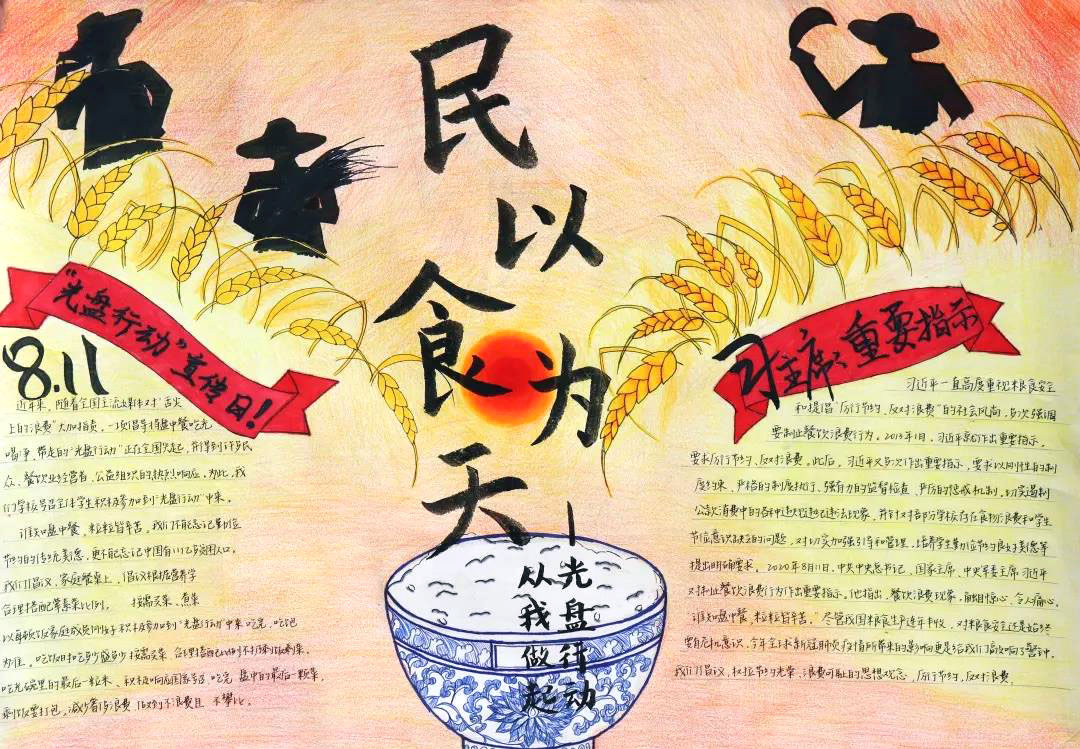 民以食为天
光盘行动
从我做起
"光盘行动"宣传日!
8.11
近年来,随着全国主流媒体对"舌尖
上的浪费"大加指责,一项倡导将盘中餐吃光
喝净、带走的"光盘行动"正在全国兴起,并得到许多民
众、餐饮业经营者、公益组织的热烈响应。为此,我
们学校号召全体学生积极参加到"光盘行动"中来。
谁知盘中餐,粒粒皆辛苦。我们不能忘记勤俭
节约的传统美德,更不能忘记中国有1.1亿多贫困人口。
我们倡议,家庭餐桌上,倡议根据营养学
合理搭配荤素菜比例。 按需买菜、煮菜
以每顿饭家庭成员刚好 积极参加到"光盘行动"中来 吃完,吃饱
为准。吃饭时吃多少盛多少 按需买菜,合理搭配
吃光碗里的最后一粒米、积极响应国家号召 吃完 盘中的最后一颗菜,
剩饭要打包,减少着传浪费 做到不浪费且 不攀比。
习主席、重要指示
习近平一直高度重视粮食安全
和提倡"厉行节约、反对浪费"的社会风尚,多次强调
要制止餐饮浪费行为。2013年1月,习近平就作出重要指示,
要求厉行节约、反对浪费。此后,习近平又多次作出重要指示,要求以刚性的制
度约束、严格的制度执行、强有力的监督检查、严厉的惩戒机制,切实遏制
公款消费中的各种违规违纪违法现象,并针对部分学校存在食物浪费和学生
节俭意识缺乏的问题,对切实加强引导和管理,培养学生勤俭节约良好美德等
提出明确要求。2020年8月11日,中共中央总书记、国家主席、中央军委主席习近平
对制止餐饮浪费行为作出重要指示。他指出,餐饮浪费现象,触目惊心、令人痛心。
"谁知盘中餐,粒粒皆辛苦。"尽管我国粮食生产连年丰收,对粮食安全还是始终
要有危机意识,今年全球新冠肺炎疫情所带来的影响更是给我们敲响了警钟。
我们倡议,树立节约光荣、浪费可耻的思想观念,厉行节约,反对浪费。